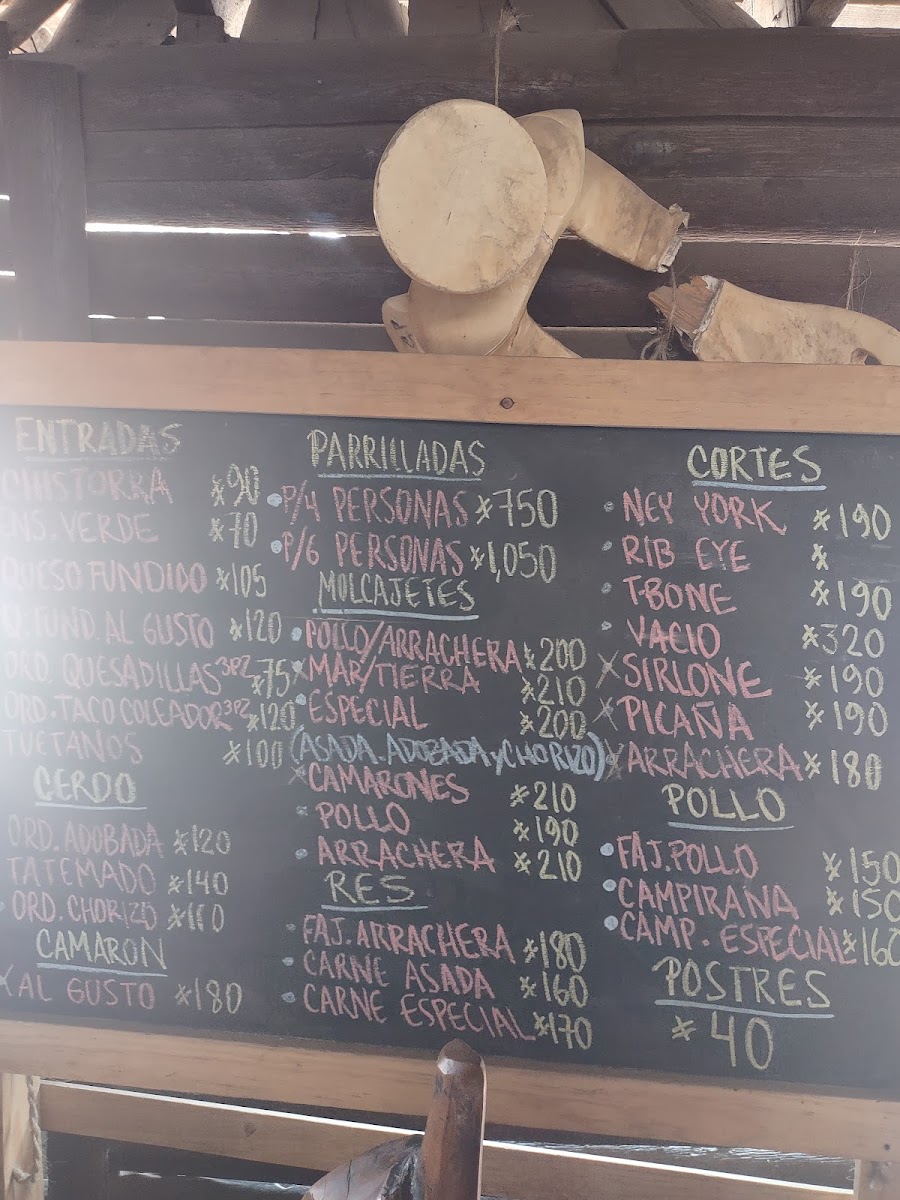 ENTRADAS
CHISTORRA $90
ENS. VERDE $70
QUESO FUNDIDO $105
Q. FUND. AL GUSTO $120
ORD. QUESADILLAS 3PZ $75
ORD. TACO COLEADOR 3PZ $120
TUETANOS $100
CERDO
ORD. ADOBADA $120
TATEMADO $140
ORD. CHORIZO $110
CAMARON
AL GUSTO $180
PARRILLADAS
P/4 PERSONAS $750
P/6 PERSONAS $1,050
MOLCAJETES
POLLO/ARRACHERA $200
MAR/TIERRA $210
ESPECIAL $200
(ASADA, ADOBADA y CHORIZO)
CAMARONES $210
POLLO $190
ARRACHERA $210
RES
FAJ. ARRACHERA $180
CARNE ASADA $160
CARNE ESPECIAL $170
CORTES
NEY YORK $190
RIB EYE $
T-BONE $190
VACIO $320
SIRLONE $190
PICAÑA $190
ARRACHERA $180
POLLO
FAJ. POLLO $150
CAMPIRANA $150
CAMP. ESPECIAL $160
POSTRES
$40